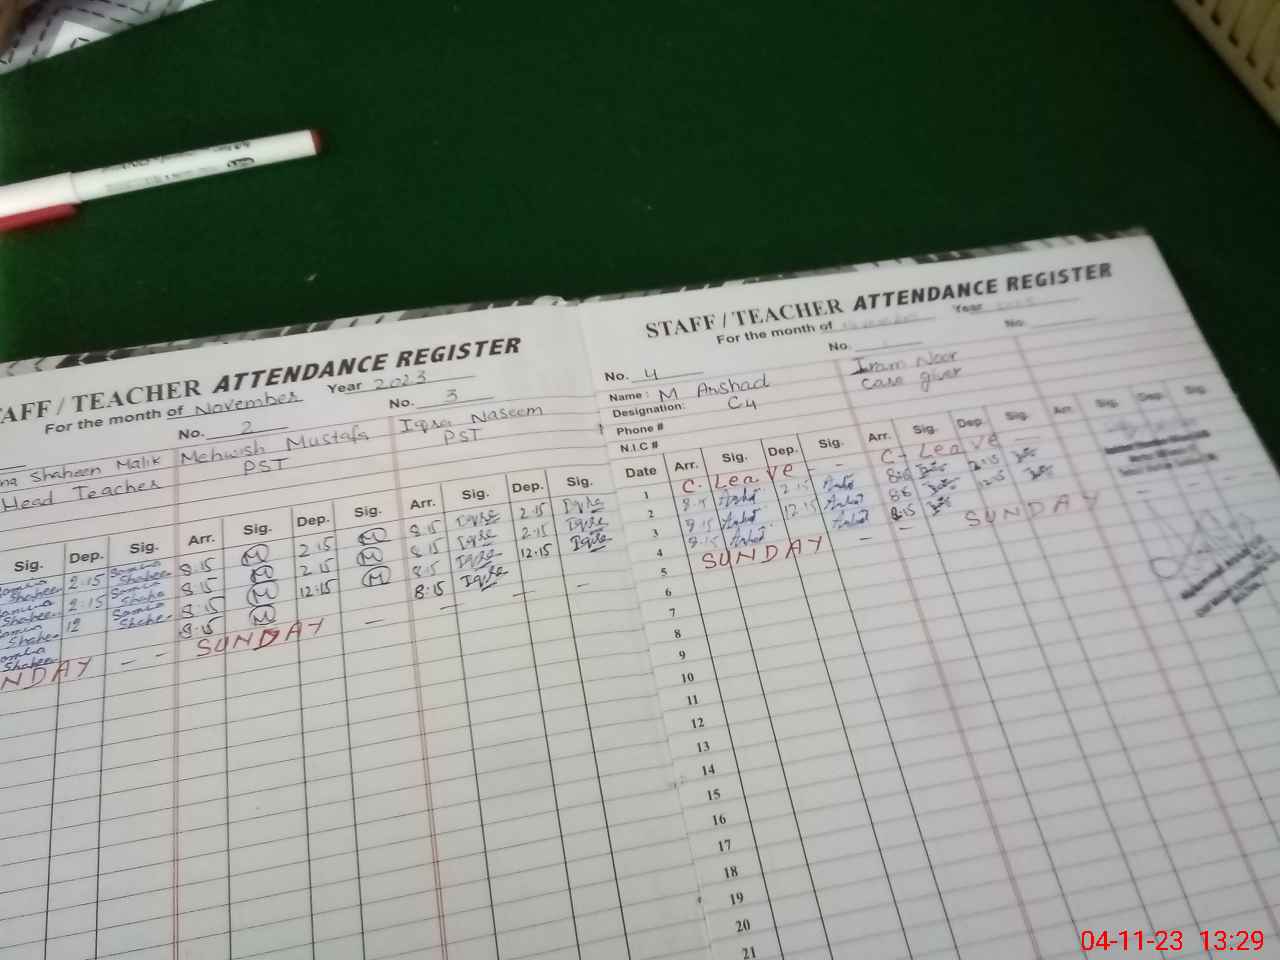 STAFF / TEACHER ATTENDANCE REGISTER
For the month of Year
No. No.
No. 4
Name: M Arshad Iram Noor
Designation: C4 Care giver
Phone #
N.I.C #
Date Arr. Sig. Dep. Sig. Arr. Sig. Dep. Sig. Arr. Sig. Dep. Sig.
1 C. Leave - - C. Leave -
2 8.15 2.15 2.15
3 8.15 12.15 12.15
4 8.15 8.15
5 SUNDAY - - SUNDAY
6
7
8
9
10
11
12
13
14
15
16
17
18
19
20
21
AFF / TEACHER ATTENDANCE REGISTER
For the month of November Year 2023
No. 2 No. 3
na Shaheen Malik Mehwish Mustafa Iqra Naseem
Head Teacher PST PST
Sig. Dep. Sig. Arr. Sig. Dep. Sig. Arr. Sig. Dep. Sig.
Samina Shaheen 2.15 Samina Shaheen 8.15 M 2.15 M 8.15 Iqra 2.15 Iqra
Samina Shaheen 2.15 Samina Shahe 8.15 M 2.15 M 8.15 Iqra 2.15 Iqra
Samina Shahe 12 Samina Shahe 8.15 M 12.15 M 8.15 Iqra 12.15 Iqra
Samina Shaheen 8.15 M 8.15 Iqra
NDAY - - SUNDAY - - - -
04-11-23 13:29